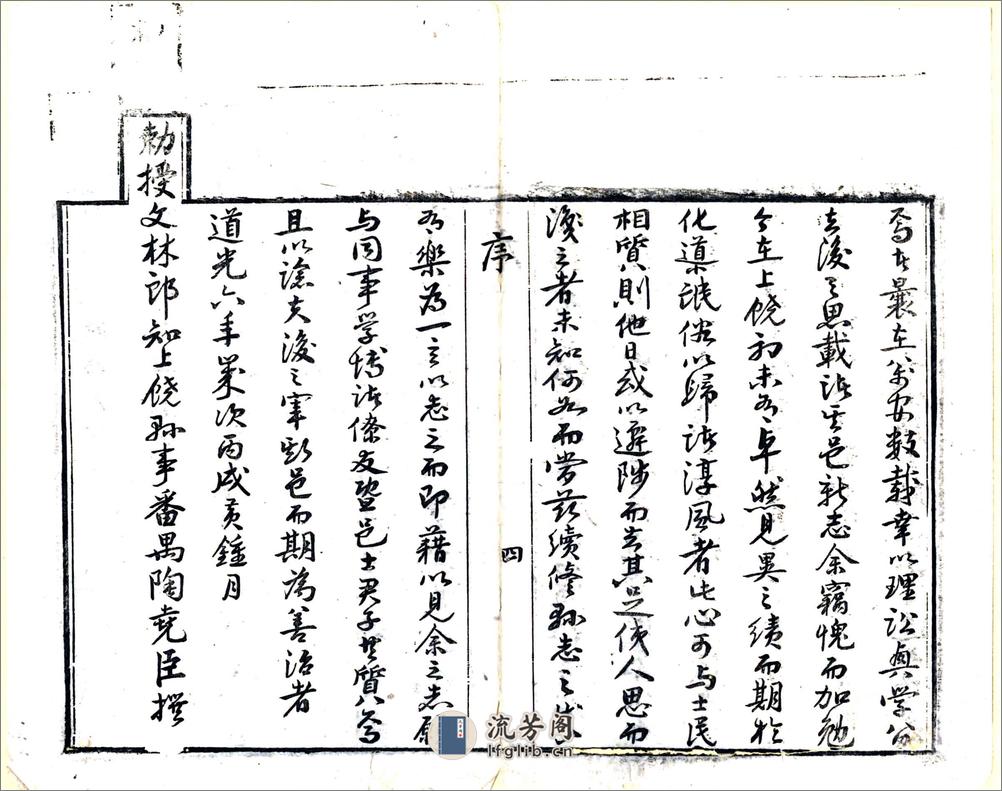 焉在曩在萬安數載幸以理訟興學公
去後之思載諸其邑新志余竊愧而加勉
今在上饒初未有卓然見異之績而期於
化道諸俗以歸諸淳風者此心可与士民
相質則他日或以遷陟而去其足使人思而
後之者未知何如而當茲續修縣志之
序
四
有樂為一言以志之而即藉以見余之志原
与同事学博諸僚友暨邑士君子共質焉
且以諗夫後之宰斯邑而期為善治者
道光六年歲次丙戌黃鍾月
勅授文林郎知上饒縣事番禺陶堯臣撰
流芳阁
lfglib.cn